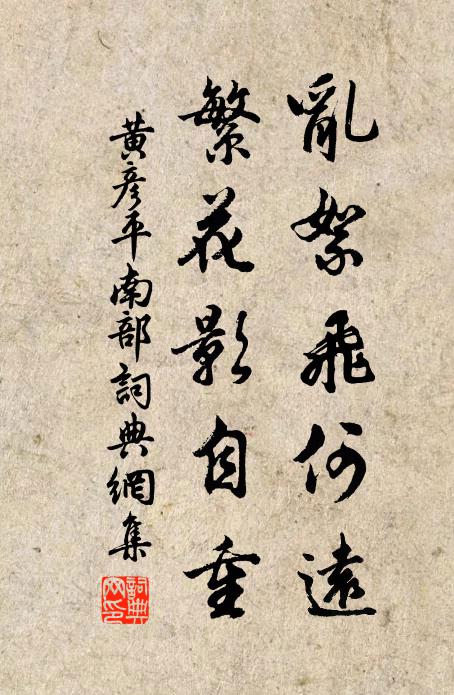 亂絮飛何遠
繁花影自重
黃彥平南部詞典網集
詞典網印